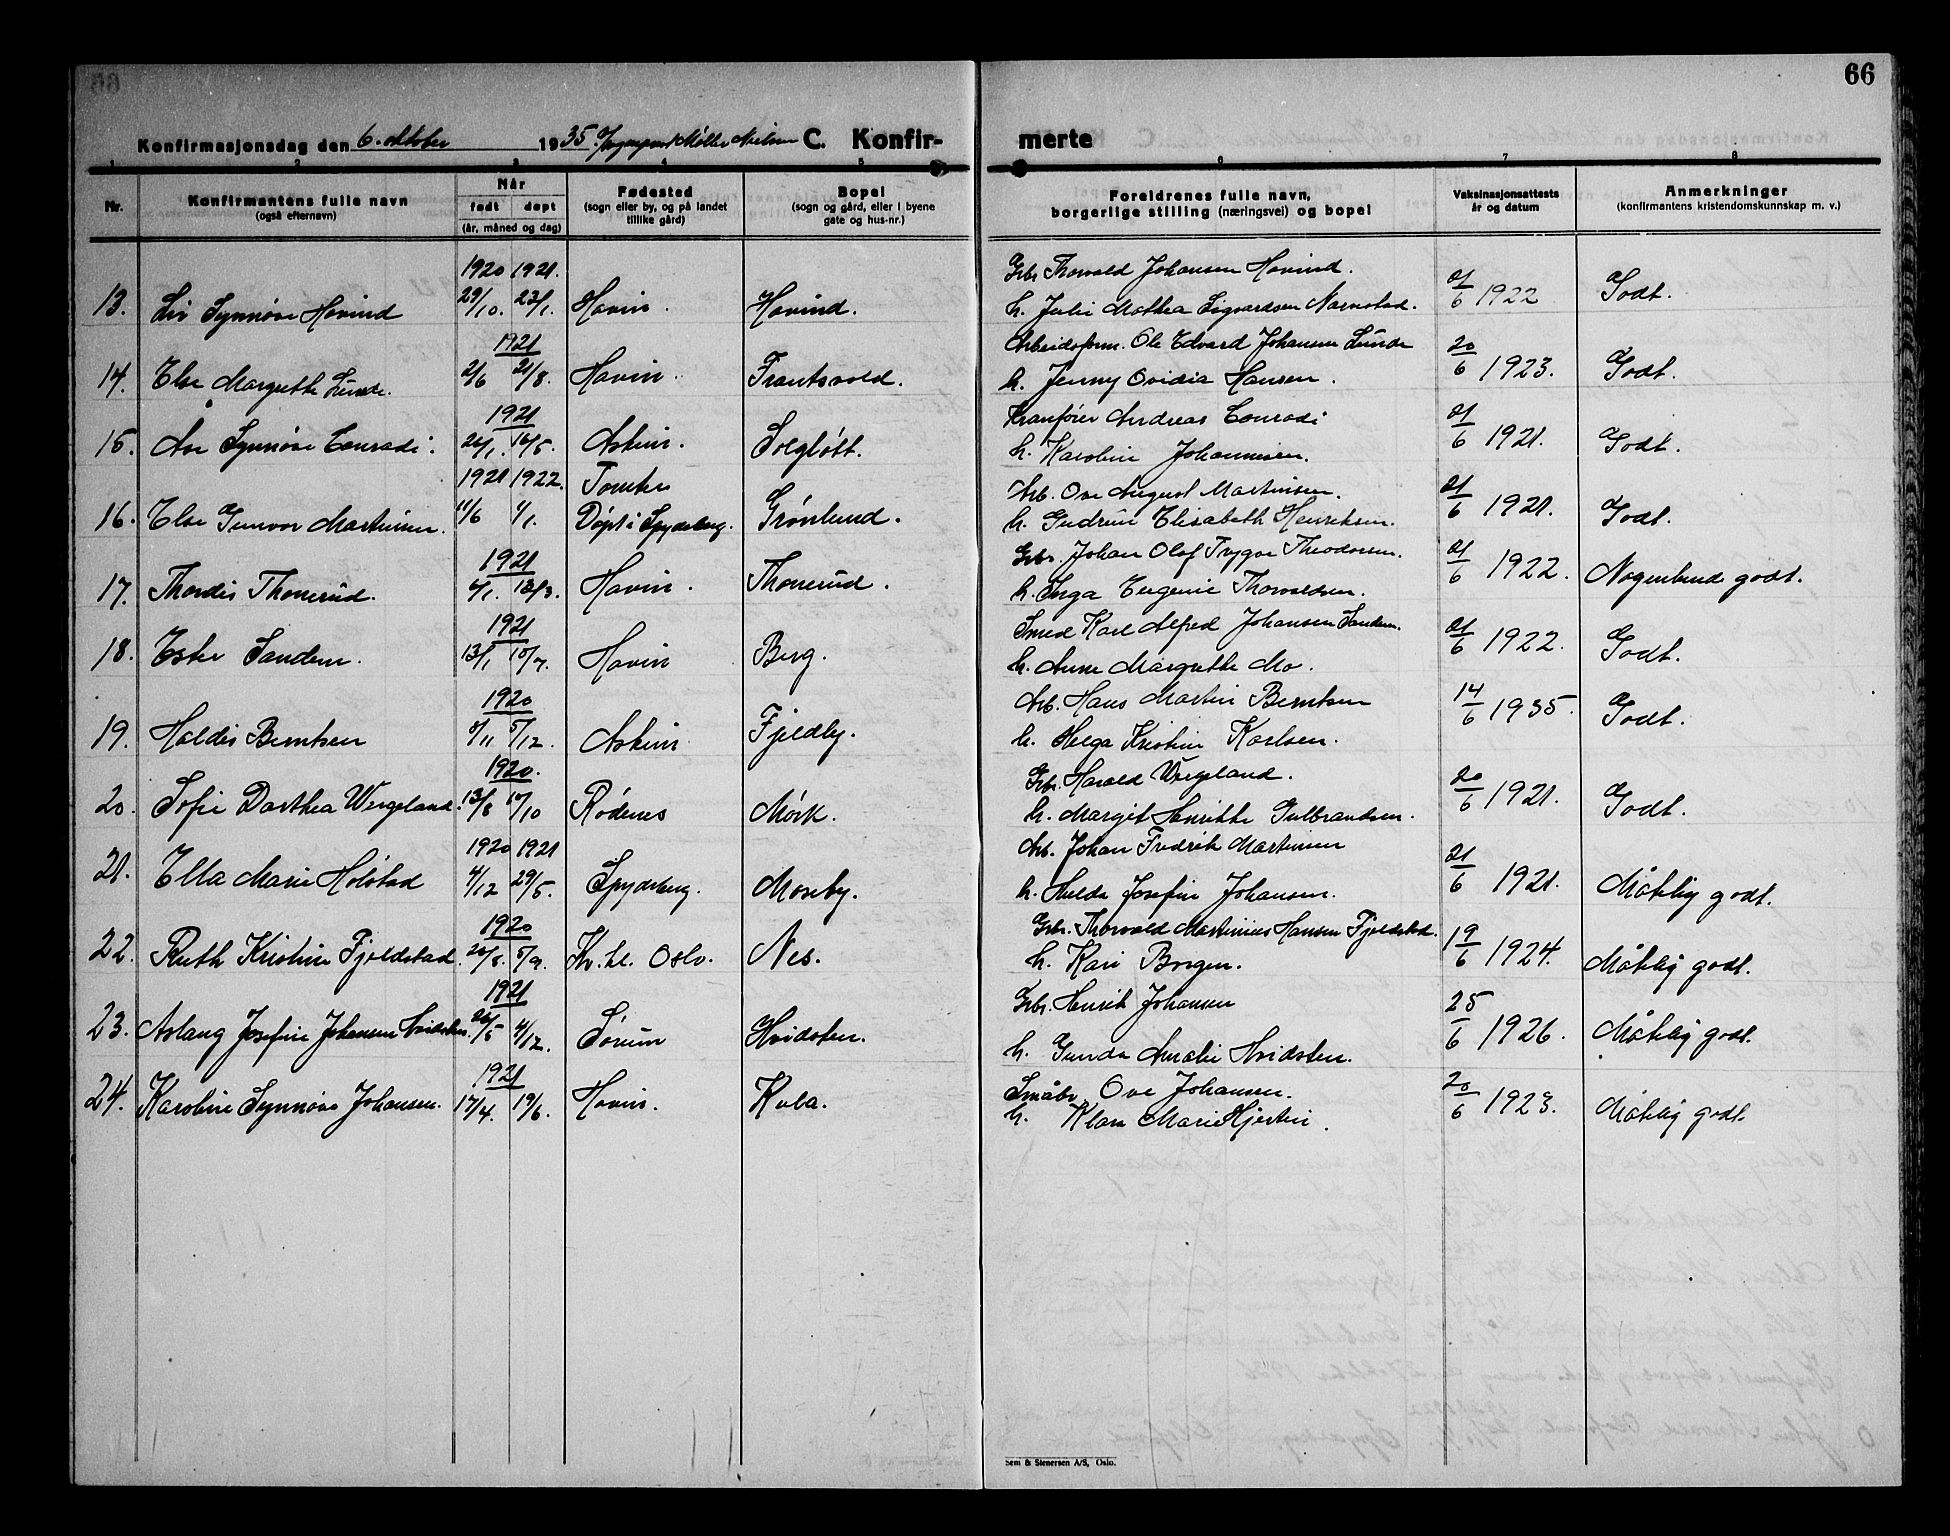 66
Konfirmasjonsdag den 6. oktober 1935. Møller Nielsen C. Konfir- merte
1 2 3 4 5 6 7 8
Nr.
Konfirmantens fulle navn
(også efternavn)
Når
født døpt
(år, måned og dag)
Fødested
(sogn eller by, og på landet
tillike gård)
Bopel
(sogn og gård, eller i byene
gate og hus-nr.)
Foreldrenes fulle navn,
borgerlige stilling (næringsvei) og bopel
Vaksinasjonsattests
år og datum
Anmerkninger
(konfirmantens kristendomskunnskap m. v.)
1920 1921. Gbr. Thorvald Johansen Hovind.
13. Liv Synnøve Hovind 29/10. 23/1. Hovin. Hovind. h. Julie Mathea Sigvardsen Narvestad. 21/6 1922 Godt.
1921 Arbeidsform. Ole Edvard Johansen Lunde
14. Else Margrethe Lunde. 2/6 21/8. Hovin. Frantsvold. h. Jenny Ovidia Hansen. 20/6 1923. Godt.
1921 Kranfører Andreas Conradi
15. Åse Synnøve Conradi. 26/1. 16/5. Askim. Solgløtt. h. Karoline Johannesen. 21/6 1921. Godt.
1921 1922. Tomter Arb. Ove August Martinsen.
16. Else Gunvor Martinsen. 11/6 1/1. Døpt i Spydeberg. Grønlund. h. Gudrun Elisabeth Henriksen. 21/6 1921. Godt.
1921 Gbr. Johan Olaf Trygve Theodorsen.
17. Thordis Thonerud. 6/1. 13/3. Hovin. Thonerud. h. Inga Eugenie Thorvaldsen. 21/6 1922. Nogenlunde godt.
1921 Smed Karl Alfred Johansen Sandem.
18. Ester Sandem. 13/1 10/7. Hovin Berg. h. Anne Margrethe Mo. 21/6 1922. Godt.
1920 Arb. Hans Martin Berntsen
19. Haldis Berntsen 8/11 5/12. Askim Fjeldby. h. Helga Kristine Karlsen. 14/6 1935. Godt.
1920. Gbr. Harald Wergeland.
20. Sofie Dorthea Wergeland. 13/8 10/10 Rødenes Mørk. h. Margit Henrikke Gulbrandsen. 20/6 1921. Godt.
1920 1921 Arb. Johan Fredrik Martinsen
21. Ella Marie Holstad 4/12 29/5. Spydeberg. Moseby. h. Hulda Josefine Johansen. 21/6 1921. Måtelig godt.
1920 Gbr. Thorvald Martinius Hansen Fjeldstad.
22. Ruth Kristine Fjeldstad. 20/8. 5/9. Kv. kl. Oslo. Nes. h. Kari Borgen. 19/6 1924. Måtelig godt.
1921 Gbr. Henrik Johansen
23. Aslaug Josefine Johansen Hvidsten. 26/5 4/12. Sørum Hvidsten. h. Gunda Amalie Hvidsten. 25/6 1926. Måtelig godt.
1921 Småbr. Ove Johansen.
24. Karoline Synnøve Johansen. 17/4. 19/6. Hovin. Kula. h. Klara Marie Hjertin. 20/6 1923. Måtelig godt.
Sem & Stenersen A/S, Oslo.